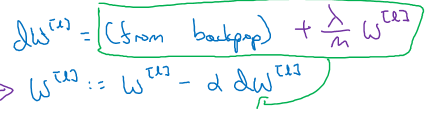 dW^[l] = (from backprop) + λ/m W^[l]
W^[l] := W^[l] - α dW^[l]